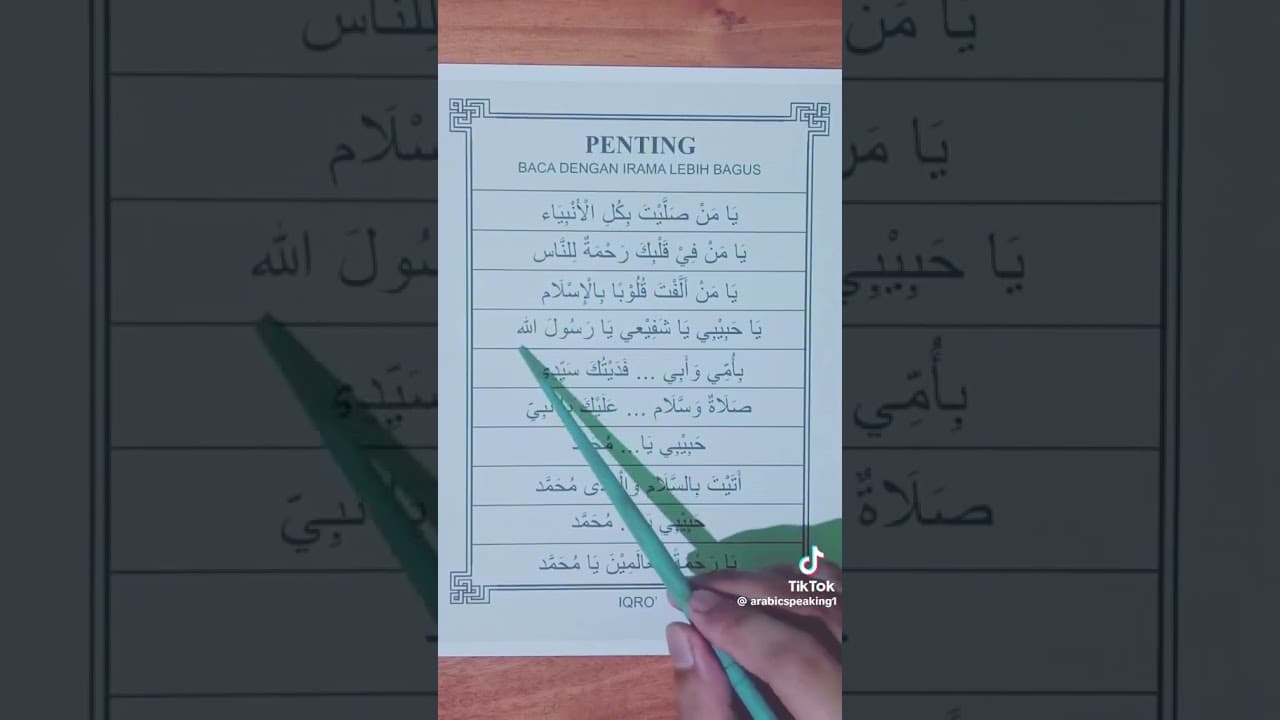 PENTING
BACA DENGAN IRAMA LEBIH BAGUS
يَا مَنْ صَلَّيْتَ بِكُلِ الْأَنْبِيَاء
يَا مَنْ فِيْ قَلْبِكَ رَحْمَةٌ لِلنَّاس
يَا مَنْ أَلَّفْتَ قُلُوْبًا بِالْإِسْلَام
يَا حَبِيْبِي يَا شَفِيْعي يَا رَسُولَ الله
بِأُمِّي وَأَبِي ... فَدَيْتُكَ سَيِّدِي
صَلَاةٌ وَسَّلَام ... عَلَيْكَ نَبِيّ
حَبِيْبِي يَا...
أَتَيْتَ بِالسَّلَام مُحَمَّد
حَبِيْبِي مُحَمَّد
يَا رَحْمَةً يَا مُحَمَّد
IQRO'
TikTok
@ arabicspeaking1